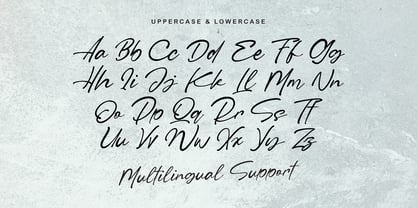 UPPERCASE & LOWERCASE
Aa Bb Cc Dd Ee Ff Gg
Hh Ii Jj Kk Ll Mm Nn
Oo Pp Qq Rr Ss Tt
Uu Vv Ww Xx Yy Zz
Multilingual Support